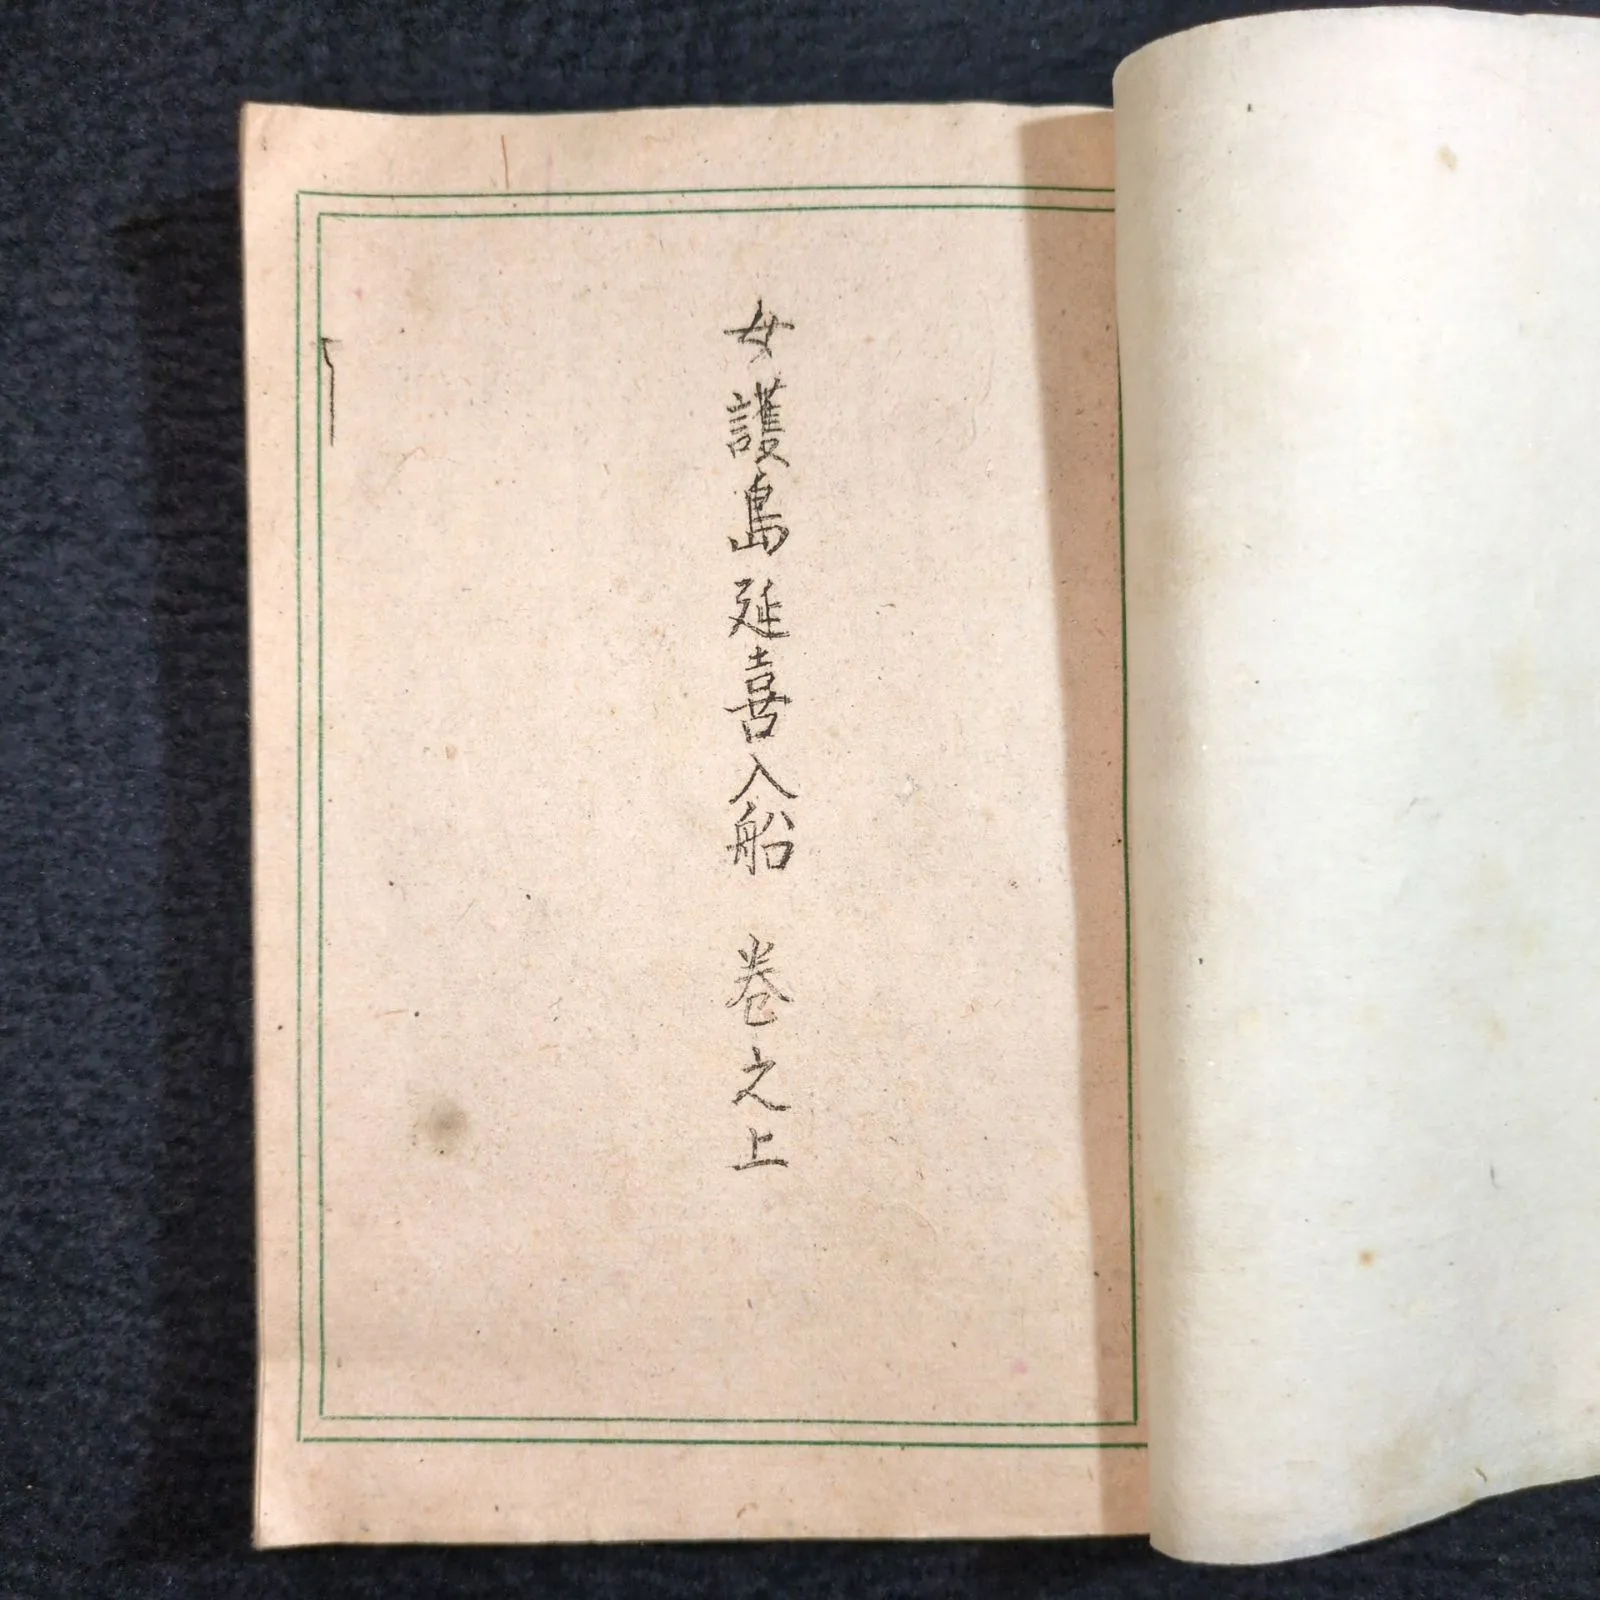 女護島延喜入船　巻之上